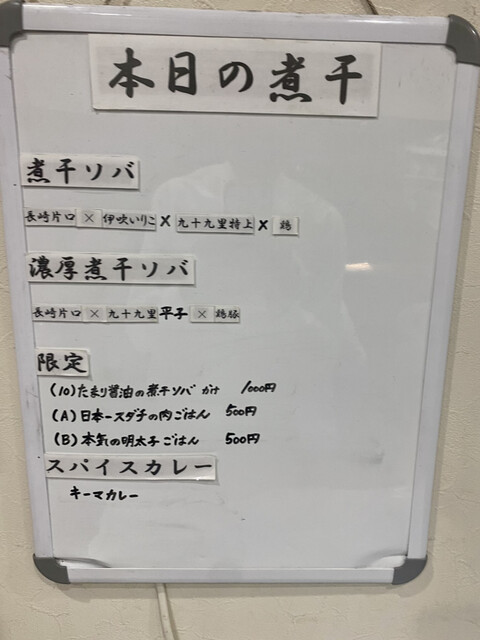 本日の煮干
煮干ソバ
長崎片口 × 伊吹いりこ × 九十九里特上 × 鶏
濃厚煮干ソバ
長崎片口 × 九十九里 平子 × 鶏豚
限定
(10)たまり醤油の煮干ソバ かけ 1000円
(A)日本一スダチの肉ごはん 500円
(B)本気の明太子ごはん 500円
スパイスカレー
キーマカレー